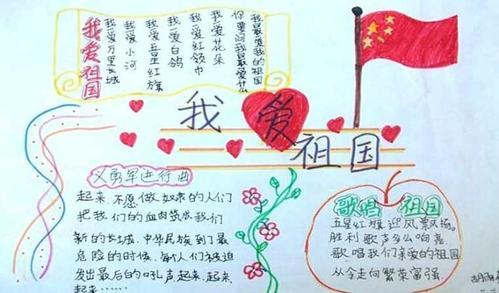 我爱祖国
我爱万里长城
我爱小河
我爱五星红旗
我爱白鸽
我爱红领巾
我爱花朵
你要问我最爱什么
我最爱我的祖国
我爱
祖国
义勇军进行曲
起来,不愿做奴隶的人们
把我们的血肉筑成我们
新的长城,中华民族到了最
危险的时候,每个人们被迫
发出最后的吼声起来,起来
起来……
歌唱 祖国
五星红旗迎风飘扬。
胜利歌声多么响亮
歌唱我们亲爱的祖国
从今走向繁荣富强